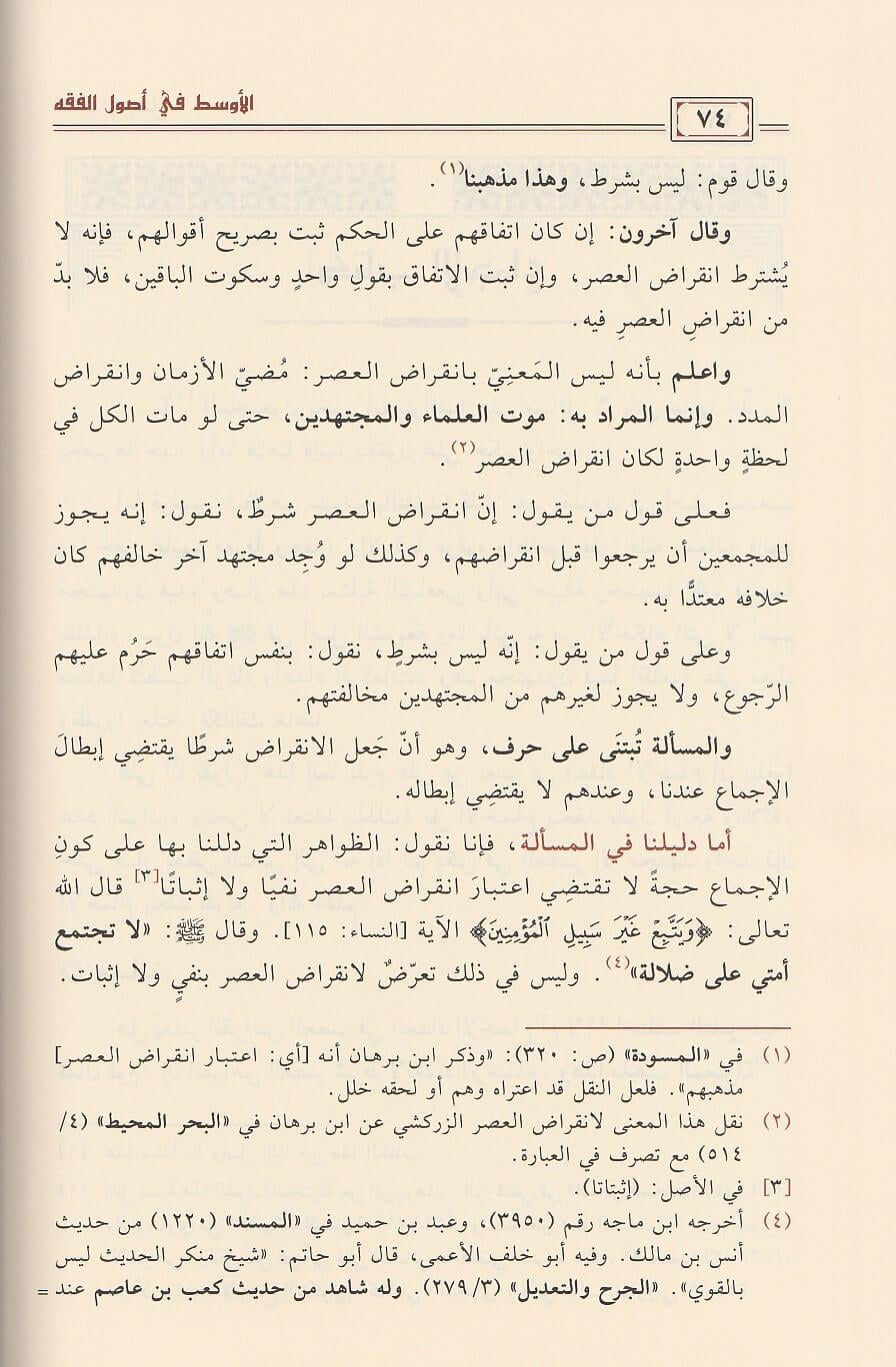 الأوسط في أصول الفقه
٧٤
وقال قوم: ليس بشرط، وهذا مذهبنا(١).
وقال آخرون: إن كان اتفاقهم على الحكم ثبت بصريح أقوالهم، فإنه لا
يُشترط انقراض العصر، وإن ثبت الاتفاق بقولِ واحدٍ وسكوت الباقين، فلا بدّ
من انقراضِ العصرِ فيه.
واعلم بأنه ليس المَعنِيّ بانقراض العصر: مُضيّ الأزمان وانقراض
المدد. وإنما المراد به: موت العلماء والمجتهدين، حتى لو مات الكل في
لحظةٍ واحدةٍ لكان انقراض العصر(٢).
فعلى قول من يقول: إنّ انقراض العصر شرطٌ، نقول: إنه يجوز
للمجمعين أن يرجعوا قبل انقراضهم، وكذلك لو وُجِد مجتهد آخر خالفهم كان
خلافه معتدًّا به.
وعلى قول من يقول: إنّه ليس بشرطٍ، نقول: بنفس اتفاقهم حَرُم عليهم
الرّجوع، ولا يجوز لغيرهم من المجتهدين مخالفتهم.
والمسألة تُبتنَى على حرف، وهو أنّ جَعل الانقراض شرطًا يقتضِي إبطالَ
الإجماع عندنا، وعندهم لا يقتضِي إبطاله.
أما دليلنا في المسألة، فإنا نقول: الظواهر التي دللنا بها على كونِ
الإجماع حجةً لا تقتضِي اعتبارَ انقراض العصر نفيًا ولا إثباتًا[٣] قال الله
تعالى: ﴿وَيَتَّبِعْ غَيْرَ سَبِيلِ ٱلْمُؤْمِنِينَ﴾ الآية [النساء: ١١٥]. وقال ﷺ: «لا تجتمع
أمتي على ضلالة»(٤). وليس في ذلك تعرّضٌ لانقراض العصر بنفيٍ ولا إثبات.
(١) في «المسودة» (ص: ٣٢٠): «وذكر ابن برهان أنه [أي: اعتبار انقراض العصر]
مذهبهم». فلعل النقل قد اعتراه وهم أو لحقه خلل.
(٢) نقل هذا المعنى لانقراض العصر الزركشي عن ابن برهان في «البحر المحيط» (٤/
٥١٤) مع تصرف في العبارة.
[٣] في الأصل: (إثبتاتا).
(٤) أخرجه ابن ماجه رقم (٣٩٥٠)، وعبد بن حميد في «المسند» (١٢٢٠) من حديث
أنس بن مالك. وفيه أبو خلف الأعمى، قال أبو حاتم: «شيخ منكر الحديث ليس
بالقوي». «الجرح والتعديل» (٣/ ٢٧٩). وله شاهد من حديث كعب بن عاصم عند =